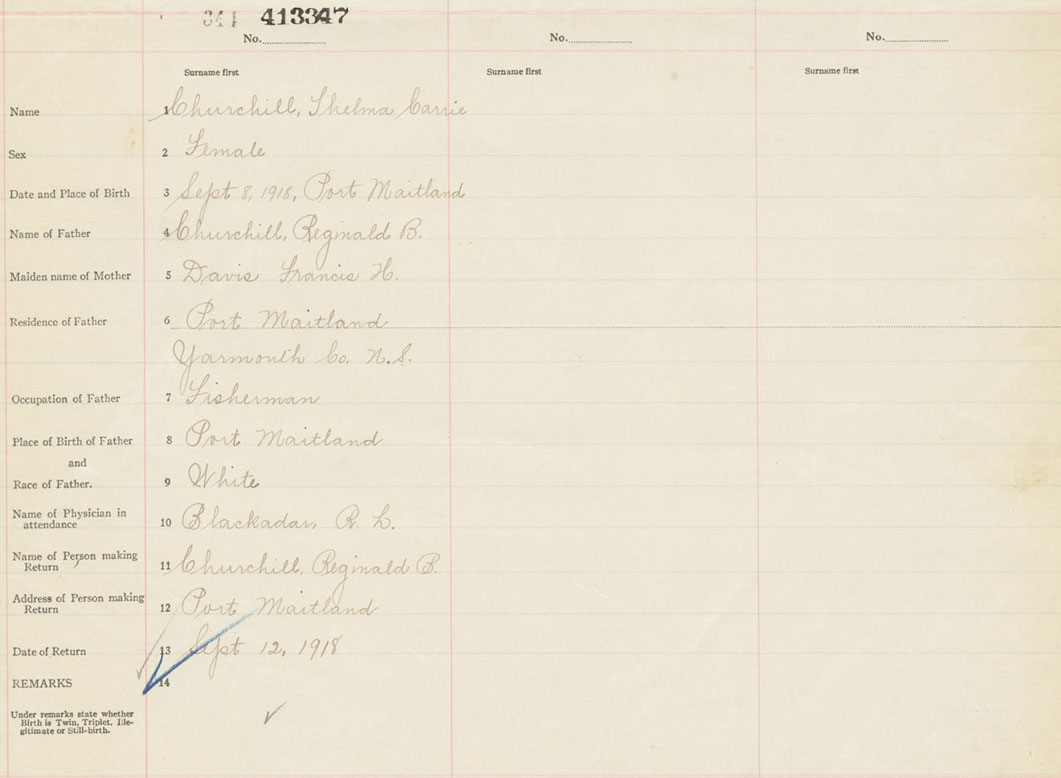 341 413347
No. No. No.
Surname first Surname first Surname first
Name 1 Churchill, Thelma Carrie
Sex 2 Female
Date and Place of Birth 3 Sept 8, 1918, Port Maitland
Name of Father 4 Churchill, Reginald B.
Maiden name of Mother 5 Davis Francis H.
Residence of Father 6 Port Maitland
Yarmouth Co. N.S.
Occupation of Father 7 Fisherman
Place of Birth of Father 8 Port Maitland
and
Race of Father. 9 White
Name of Physician in
attendance 10 Blackadar, R. L.
Name of Person making
Return 11 Churchill, Reginald B.
Address of Person making
Return 12 Port Maitland
Date of Return 13 Sept 12, 1918
REMARKS 14
Under remarks state whether
Birth is Twin, Triplet, Ille-
gitimate or Still-birth.